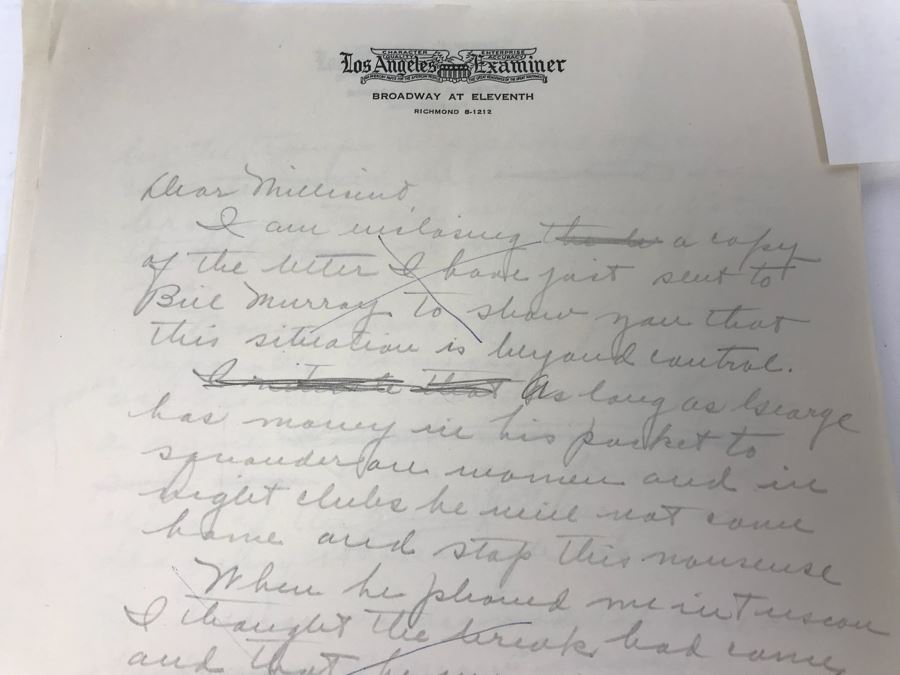 CHARACTER QUALITY ENTERPRISE ACCURACY
Los Angeles Examiner
BROADWAY AT ELEVENTH
RICHMOND 8-1212
Dear Millicent,
I am inclosing a copy
of the letter I have just sent to
Bill Murray to show you that
this situation is beyond control.
As long as George
has money in his pocket to
squander on women and in
night clubs he will not come
home and stop this nonsense
When he phoned me in Tuscon
I thought the break had come
and that he